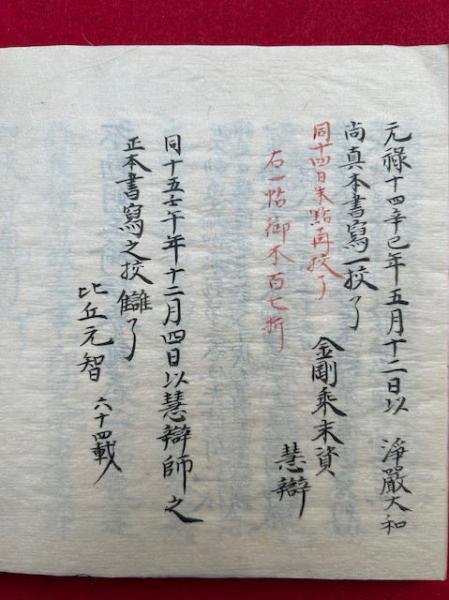 元祿十四辛巳年五月十二日以 淨嚴大和
尚真本書寫一挍了
金剛乘末資 慧辯
同十四日朱點再挍了
右一帖御本百七折
同十五壬午年十二月四日以慧辯師之
正本書寫之挍讎了
比丘元智 六十四載